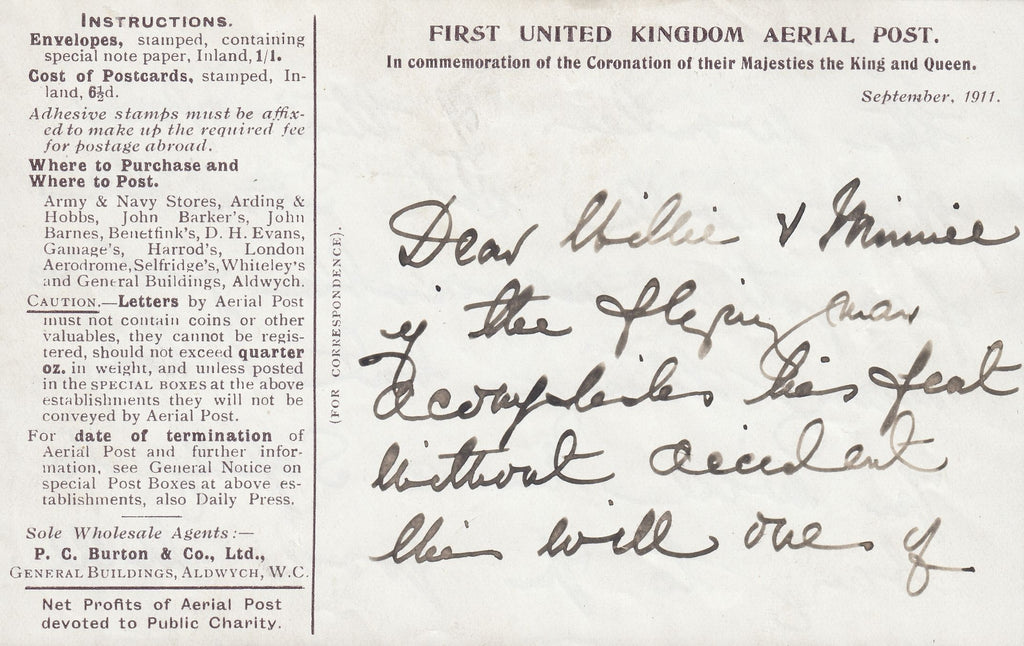 INSTRUCTIONS.
Envelopes, stamped, containing
special note paper, Inland, 1/1.
Cost of Postcards, stamped, In-
land, 6½d.
Adhesive stamps must be affix-
ed to make up the required fee
for postage abroad.
Where to Purchase and
Where to Post.
Army & Navy Stores, Arding &
Hobbs, John Barker's, John
Barnes, Benetfink's, D. H. Evans,
Gamage's, Harrod's, London
Aerodrome, Selfridge's, Whiteley's
and General Buildings, Aldwych.
CAUTION.—Letters by Aerial Post
must not contain coins or other
valuables, they cannot be regis-
tered, should not exceed quarter
oz. in weight, and unless posted
in the SPECIAL BOXES at the above
establishments they will not be
conveyed by Aerial Post.
For date of termination of
Aerial Post and further infor-
mation, see General Notice on
special Post Boxes at above es-
tablishments, also Daily Press.
Sole Wholesale Agents:—
P. C. Burton & Co., Ltd.,
GENERAL BUILDINGS, ALDWYCH, W.C.
Net Profits of Aerial Post
devoted to Public Charity.
(FOR CORRESPONDENCE).
FIRST UNITED KINGDOM AERIAL POST.
In commemoration of the Coronation of their Majesties the King and Queen.
September, 1911.
Dear Willie & Minnie
if the flying man
acomplishes his feat
without accident
this will one of